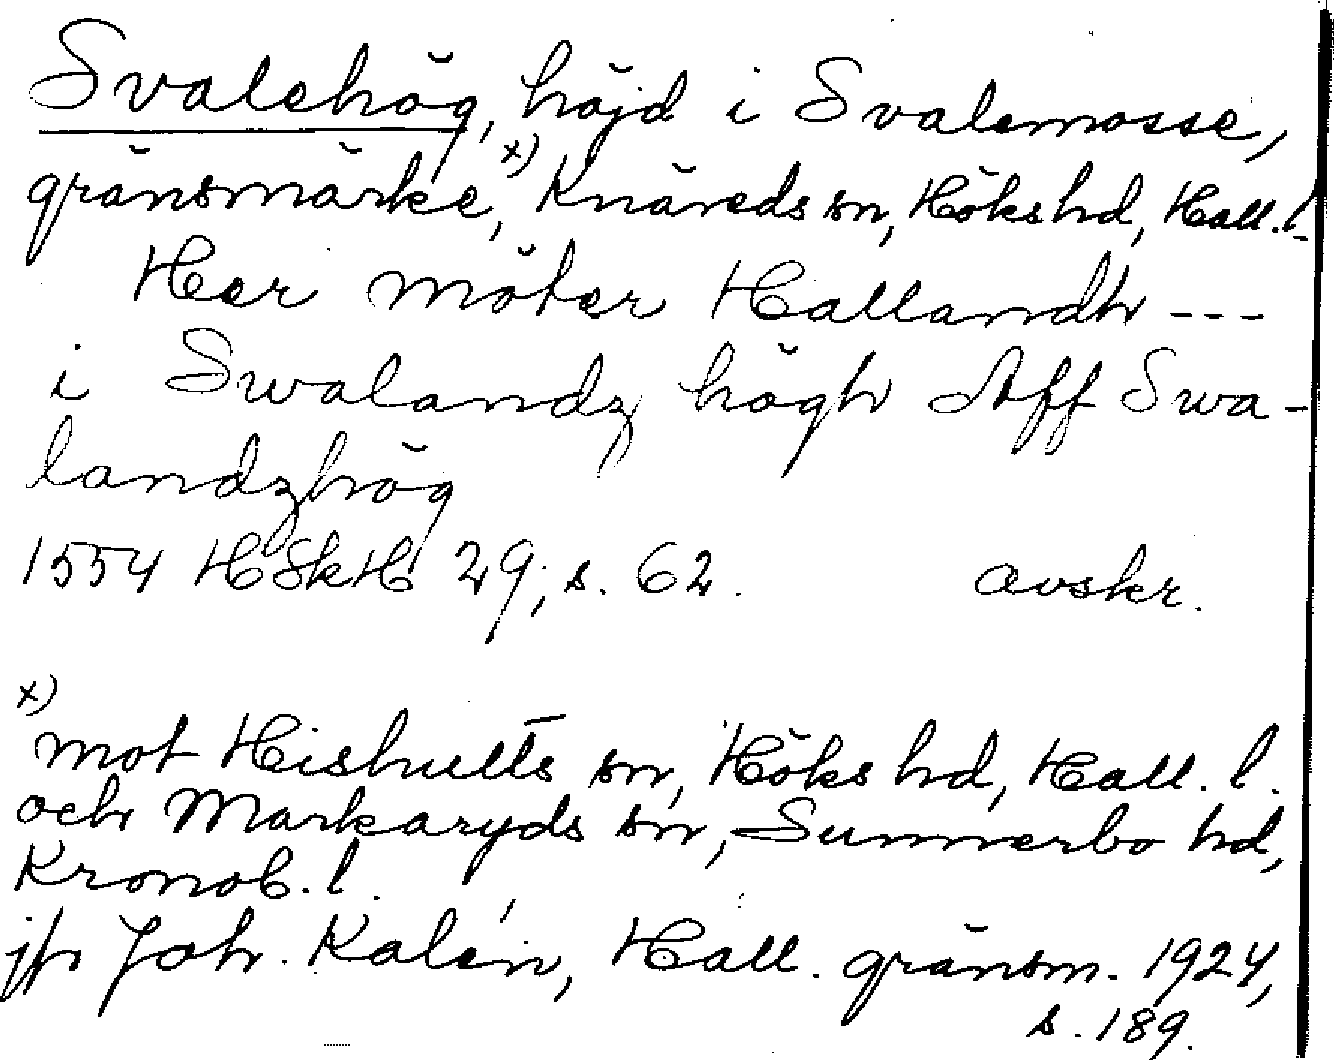 Svalehög, höjd i Svalemosse,
gränsmärke,x) Knäreds sn, Höks hd, Hall. l.
Her möter Hallandh ---
i Swalandz högh Aff Swa-
landzhög
1554 HSkH 29, s. 62. avskr.
x)
mot Hishults sn, Höks hd, Hall. l.
och Markaryds sn, Sunnerbo hd,
Kronob. l.
jfr Joh. Kalén, Hall. gränsm. 1924,
s. 189.